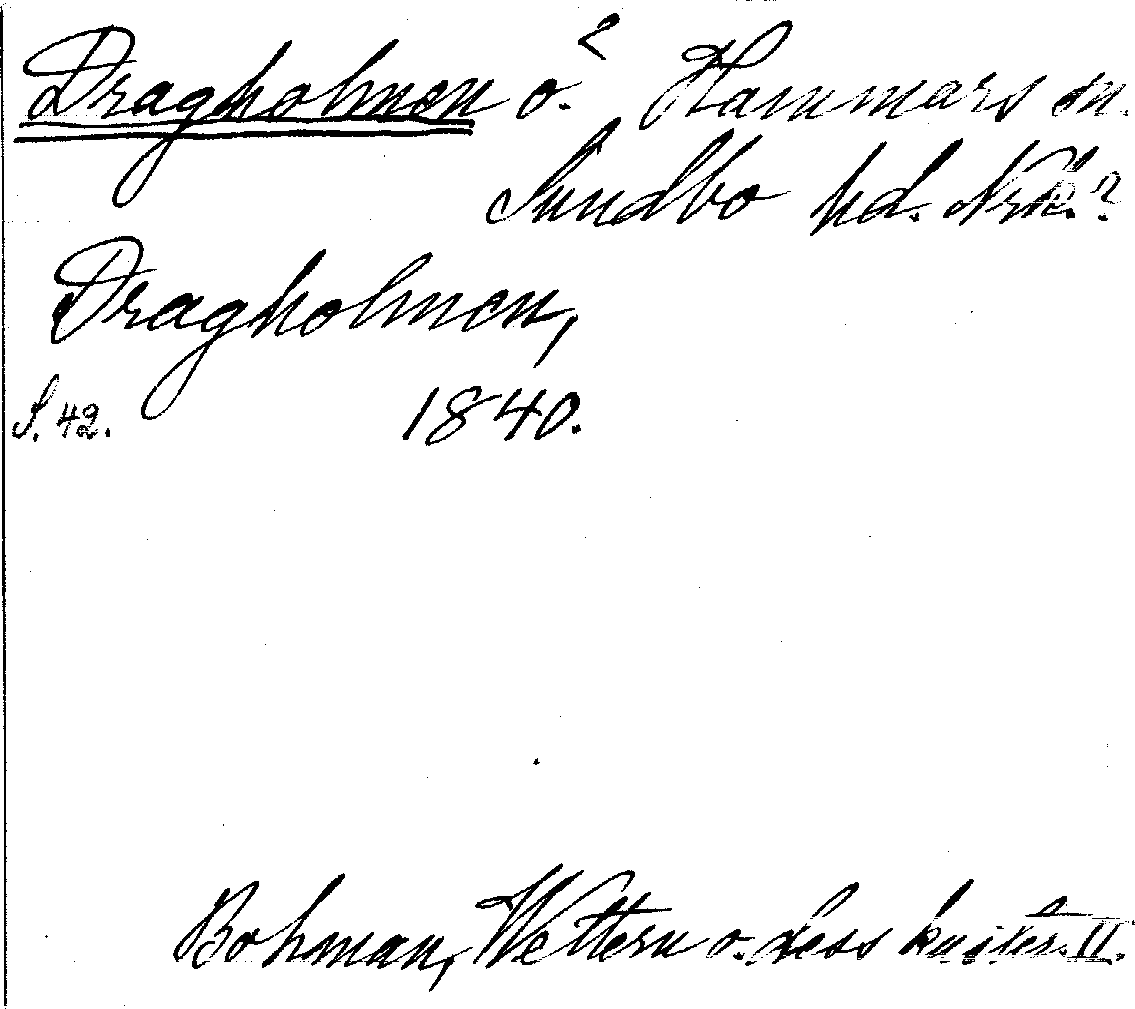 Dragholmen ö.? Hammars sn.
Sundbo hd. Nrke.?
Dragholmen,
S. 42. 1840.
Bohman, Wettern o. dess kuster. II.